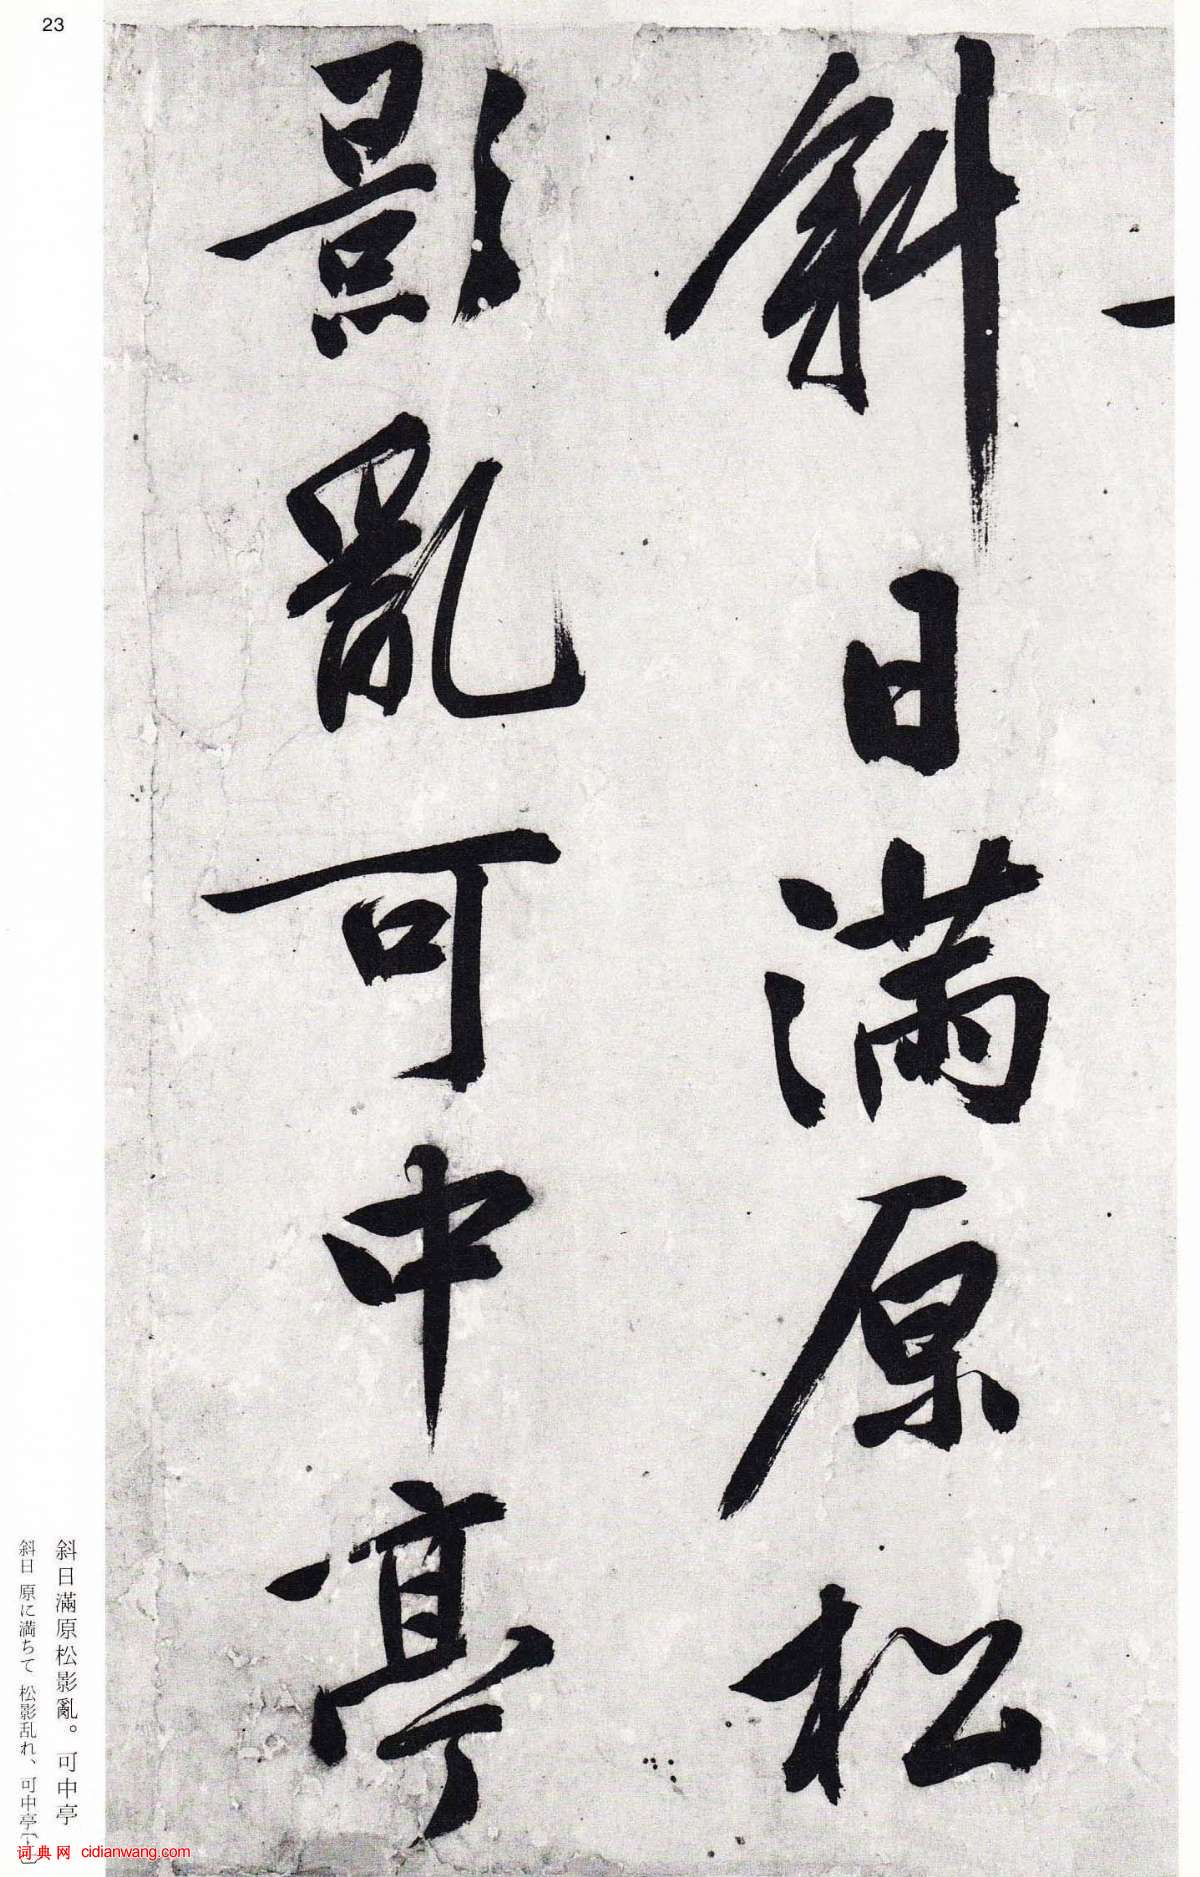 23
斜日满原松
影亂可中亭
斜日滿原松影亂。可中亭
斜日 原に満ちて 松影乱れ、可中亭
词典网 cidianwang.com